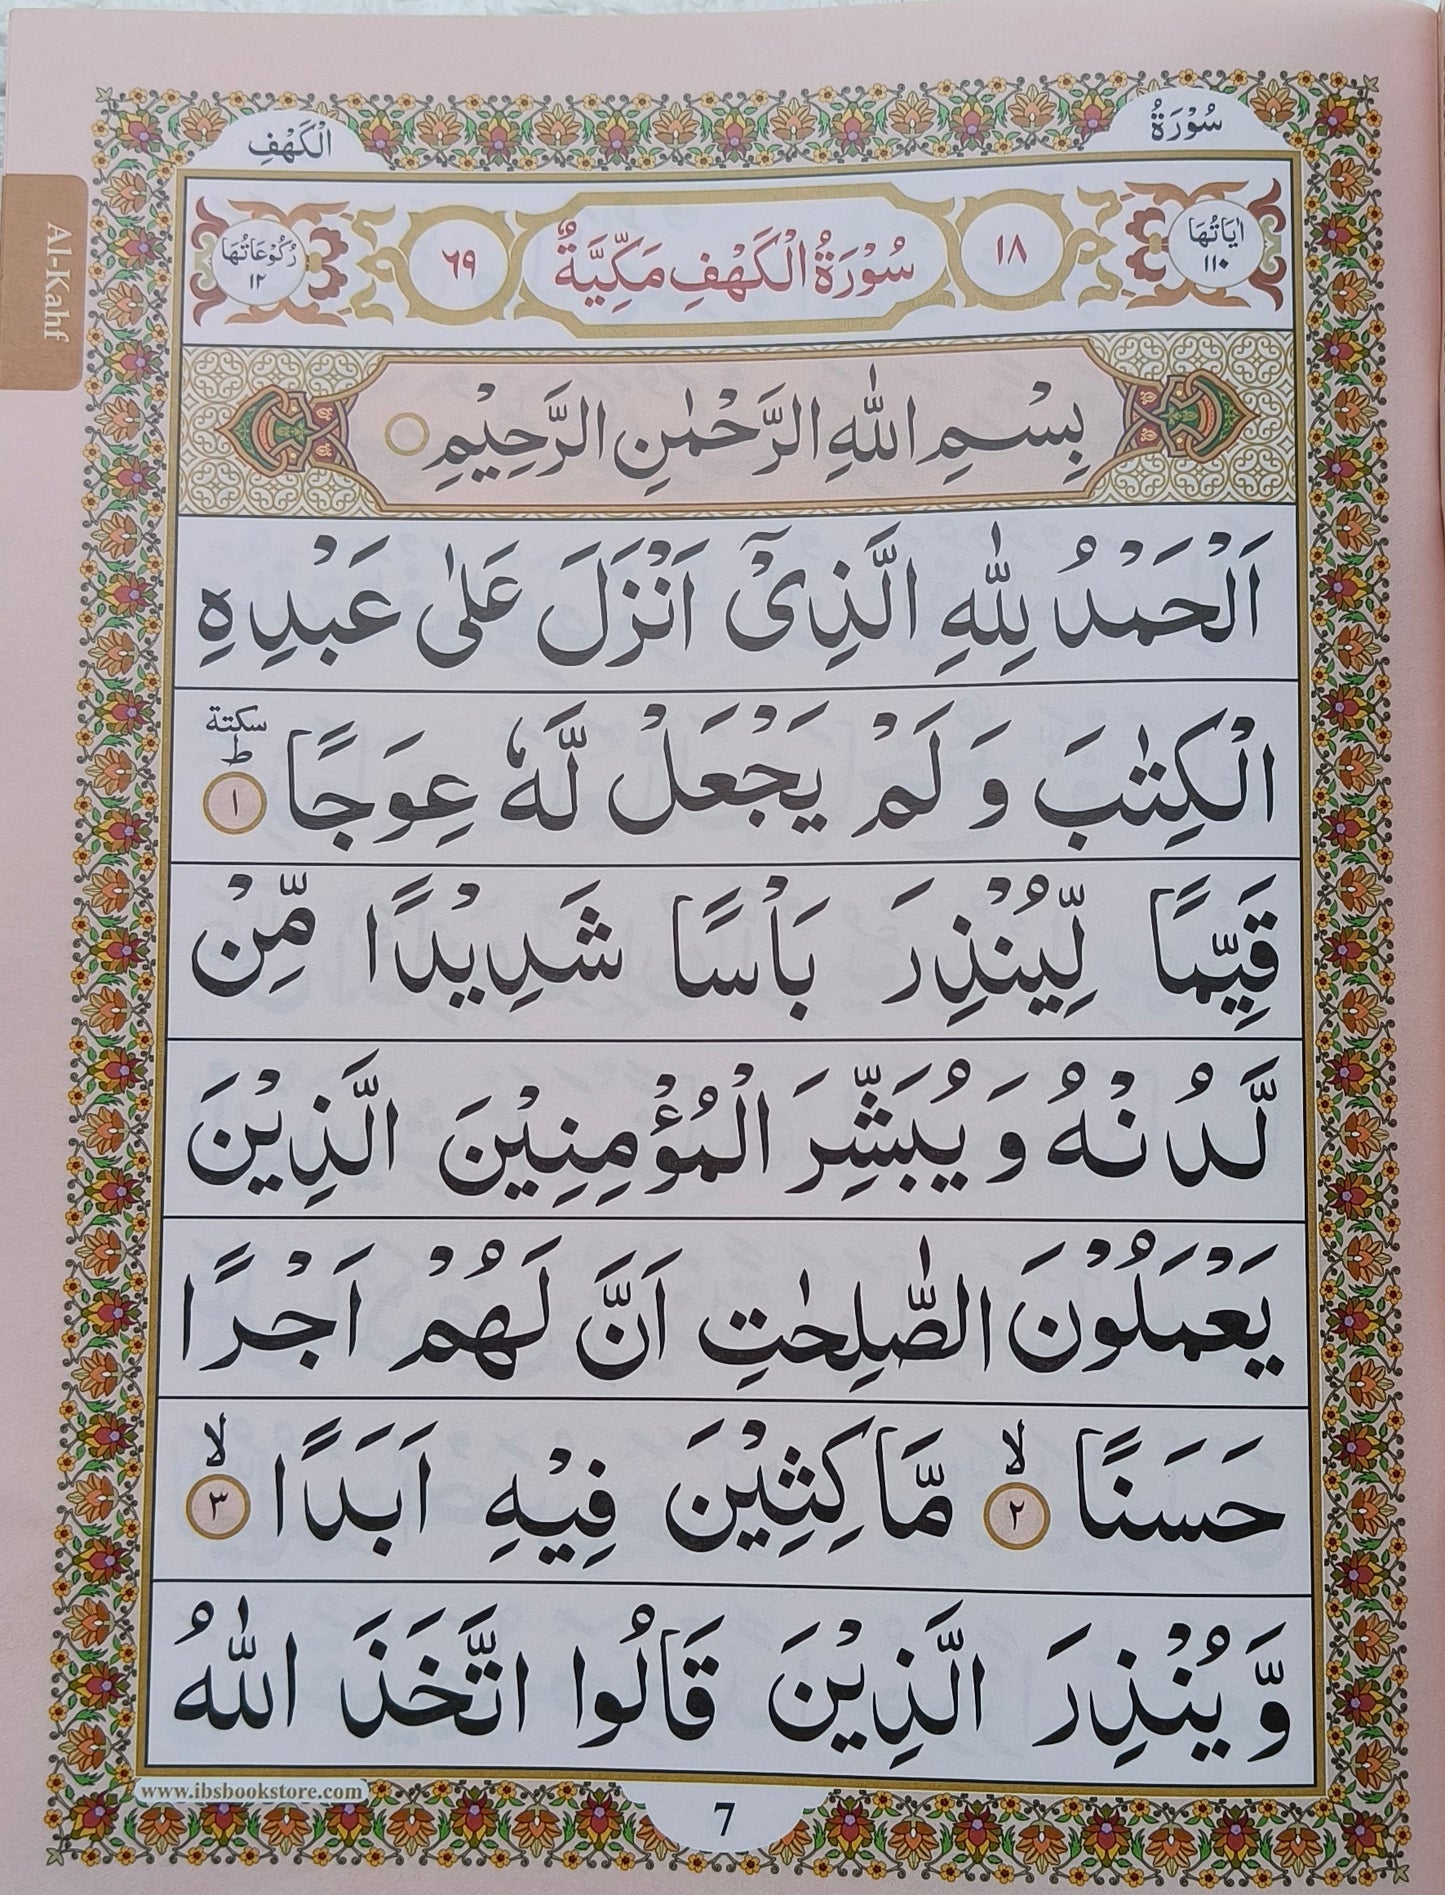 سُوْرَةُ
الْكَهْفِ
Al-Kahf
اٰيَاتُهَا ١١٠
١٨
سُوْرَةُ الْكَهْفِ مَكِّيَّةٌ
٦٩
رُكُوْعَاتُهَا ١٢
بِسْمِ اللّٰهِ الرَّحْمٰنِ الرَّحِيْمِ
اَلْحَمْدُ لِلّٰهِ الَّذِيْۤ اَنْزَلَ عَلٰى عَبْدِهِ
الْكِتٰبَ وَ لَمْ يَجْعَلْ لَّهٗ عِوَجًا ؕ سكتة ١
قَيِّمًا لِّيُنْذِرَ بَاْسًا شَدِيْدًا مِّنْ
لَّدُنْهُ وَ يُبَشِّرَ الْمُؤْمِنِيْنَ الَّذِيْنَ
يَعْمَلُوْنَ الصّٰلِحٰتِ اَنَّ لَهُمْ اَجْرًا
حَسَنًا ۙ ٢ مَّاكِثِيْنَ فِيْهِ اَبَدًا ۙ ٣
وَّ يُنْذِرَ الَّذِيْنَ قَالُوا اتَّخَذَ اللّٰهُ
www.ibsbookstore.com
7